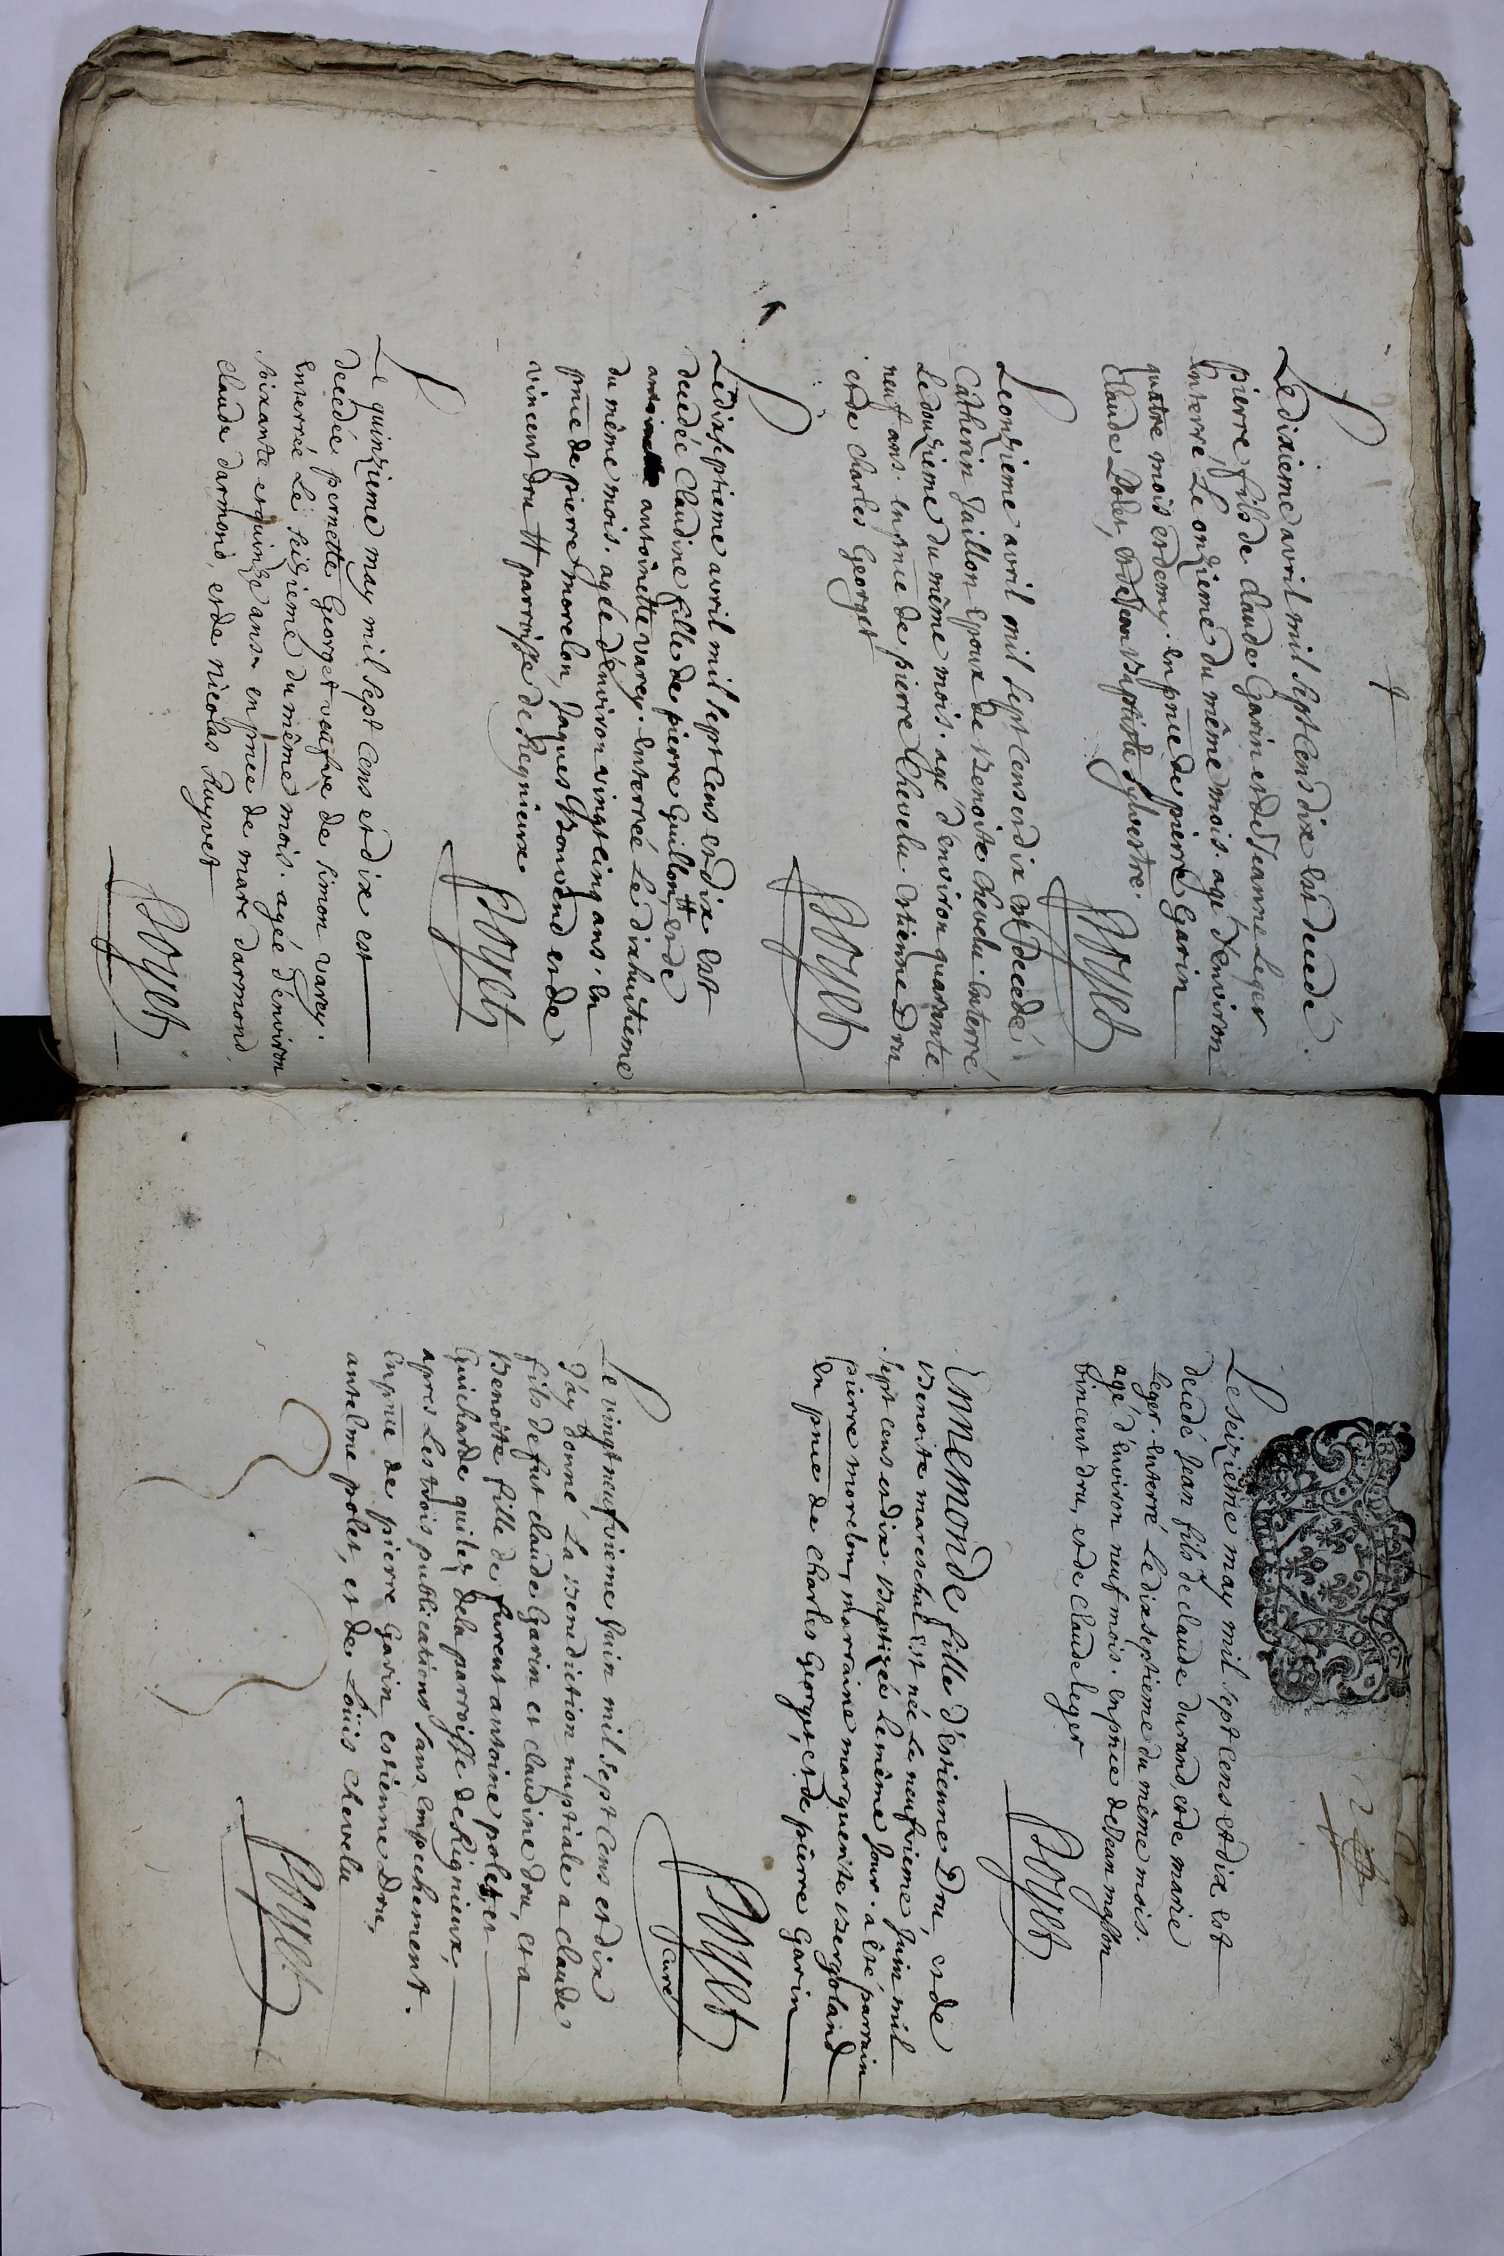 Le dixieme avril mil sept cens dix est decedé
pierre fils de claude Garin et de Jeanne Leger
enterré Le onzieme du même mois. agé d'environ
quatre mois et demy. en pnce de pierre Garin
Claude Polet, et de Jean Baptiste Sylvestre.
Royet
Le onzieme avril mil sept cens et dix est decedé
Catherin Jaillon Epoux de Benoite Chevelu. enterré
Le douzieme du même mois. agé d'environ quarante
neuf ans. en pnce de pierre Chevelu. Estienne Dru
et de charles Georget
Royet
Le dixseptieme avril mil sept cens et dix est
decedée Claudine fille de pierre Guillon, # et de
antoinette varey. enterrée Le dixhuitieme
du même mois. agée d'environ vingt cinq ans. en
pnce de pierre morelon, Jaques Bonvend et de
vincent dru # parroisse de Regnieux
Royet
Le quinzieme may mil sept cens et dix est
decedée pernette Georget veufve de simon varey.
enterrée Le seizieme du même mois. agée d'environ
soixante et quinze ans. en pnce de marc darmond,
claude darmond, et de nicolas Ruyvet
Royet
2
Le seizieme may mil sept cens et dix est
decedé Jean fils de claude durand, et de marie
Leger. enterré Le dixseptieme du même mois.
agé d'environ neuf mois. en pnce de Jean masson
vincent dru, et de claude Leger
Royet
Ennemonde fille d'Estienne Dru, et de
Benoite mareschal est née Le neufvieme Juin mil
sept cens et dix. Baptizée Le même Jour. a été parrain
pierre morelon, marraine marguerite Bergoland
en pnce de charles Georget, et de pierre Garin
Royet
Curé
Le vingt neufvieme Juin mil sept cens et dix
J'ay donné La Benediction nuptiale a claude
fils de fut claude Garin et claudine dru, et a
Benoite fille de furent antoine polet, et
Guicharde quiler de la parroisse de Rignieux,
apres Les trois publications sans empechement.
en pnce de pierre Garin estienne Dru,
antelme polet, et de Loüis chevelu
Royet